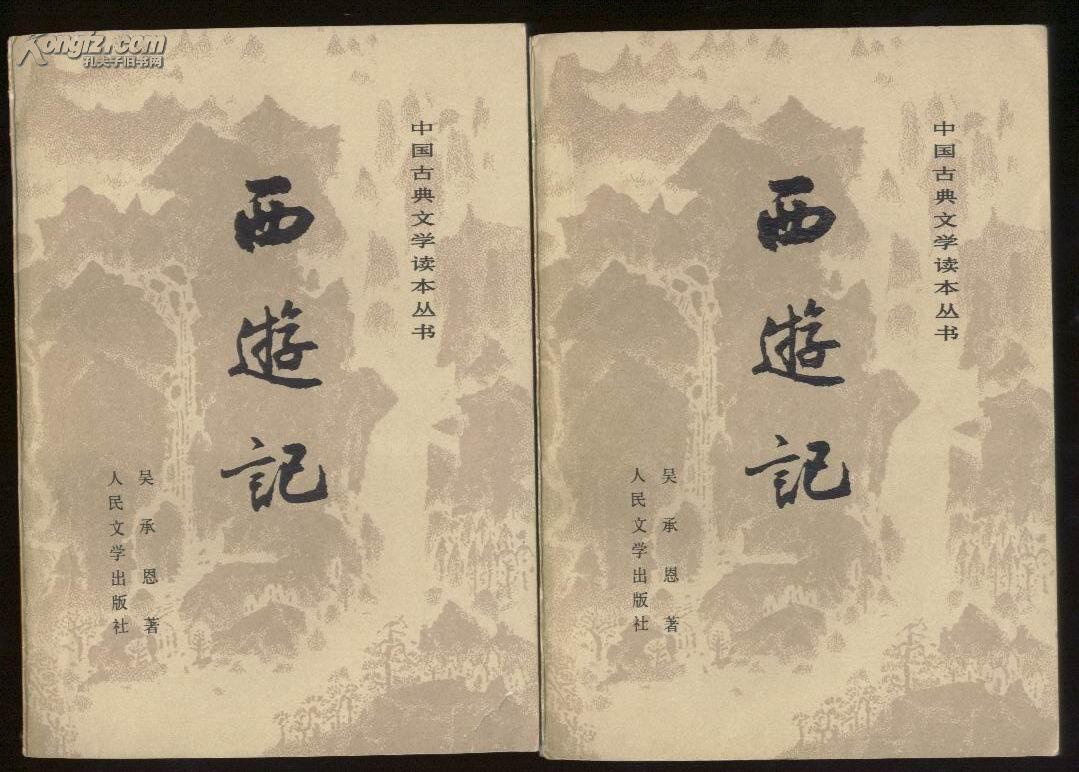 Kongfz.com
孔夫子旧书网
中国古典文学读本丛书
西遊記
吴承恩著
人民文学出版社
中国古典文学读本丛书
西遊記
吴承恩著
人民文学出版社